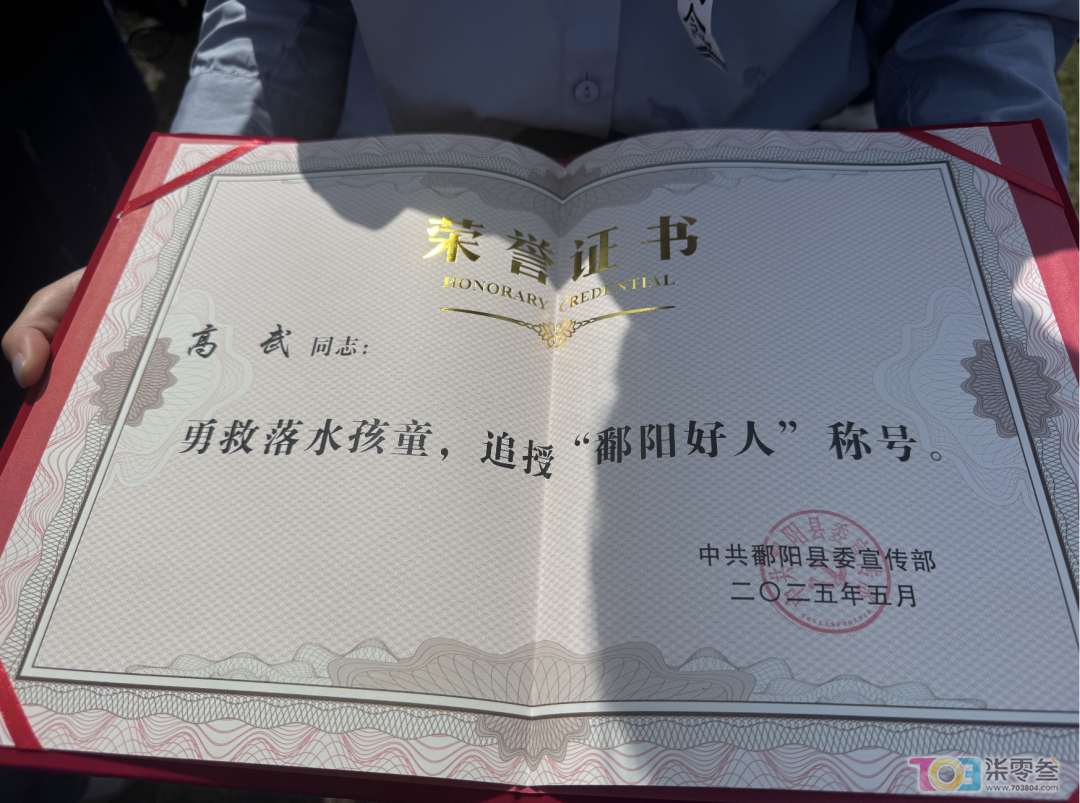 荣誉证书
HONORARY CREDENTIAL
高 武 同志：
勇救落水孩童，追授“鄱阳好人”称号。
中共鄱阳县委宣传部
二〇二五年五月
703 柒零叁
www.703804.com